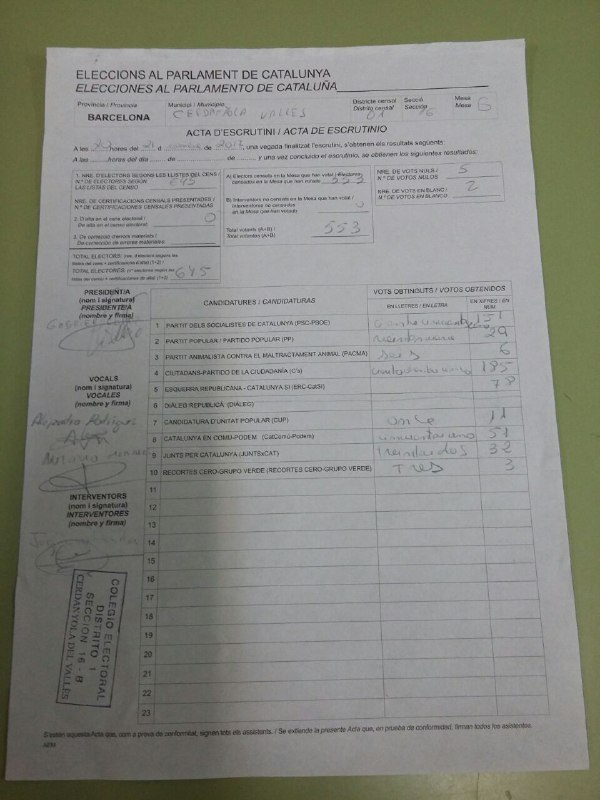 ELECCIONS AL PARLAMENT DE CATALUNYA
ELECCIONES AL PARLAMENTO DE CATALUÑA
Província / Provincia
BARCELONA
Municipi / Municipio
CERDANYOLA VALLES
Districte censal
Distrito censal
01
Secció
Sección
16
Mesa
Mesa
ACTA D'ESCRUTINI / ACTA DE ESCRUTINIO
A les hores del de de , una vegada finalitzat l'escrutini, s'obtenen els resultats següents:
A las horas del día de de y una vez concluido el escrutinio, se obtienen los siguientes resultados:
1. NRE. D'ELECTORS SEGONS LES LLISTES DEL CENS /
N.º DE ELECTORES SEGÚN
LAS LISTAS DEL CENSO
645
NRE. DE CERTIFICACIONS CENSALS PRESENTADES /
N.º DE CERTIFICACIONES CENSALES PRESENTADAS
2. D'alta en el cens electoral /
De alta en el censo electoral
0
3. De correcció d'errors materials /
De corrección de errores materiales
TOTAL ELECTORS: (nre. d'electors segons les
llistes del cens + certificacions d'alta) (1+2) /
TOTAL ELECTORES: (n.º electores según las
listas del censo + certificaciones de alta) (1+2)
645
A) Electors censats en la Mesa que han votat / Electores
censados en la Mesa que han votado
553
B) Interventors no censats en la Mesa que han votat /
Interventores no censados
en la Mesa que han votado
0
Total votants (A+B) /
Total votantes (A+B)
553
NRE. DE VOTS NULS /
N.º DE VOTOS NULOS
5
NRE. DE VOTS EN BLANC /
N.º DE VOTOS EN BLANCO
2
PRESIDENT/A
(nom i signatura)
PRESIDENTE/A
(nombre y firma)
VOCALS
(nom i signatura)
VOCALES
(nombre y firma)
Alejandra Rodríguez
INTERVENTORS
(nom i signatura)
INTERVENTORES
(nombre y firma)
CANDIDATURES / CANDIDATURAS
VOTS OBTINGUTS / VOTOS OBTENIDOS
EN LLETRES / EN LETRA
EN XIFRES / EN NÚM.
1 PARTIT DELS SOCIALISTES DE CATALUNYA (PSC-PSOE) 151
2 PARTIT POPULAR / PARTIDO POPULAR (PP) 29
3 PARTIT ANIMALISTA CONTRA EL MALTRACTAMENT ANIMAL (PACMA) seis 6
4 CIUTADANS-PARTIDO DE LA CIUDADANÍA (C's) 185
5 ESQUERRA REPUBLICANA - CATALUNYA SÍ (ERC-CatSí) 78
6 DIÀLEG REPUBLICÀ (DIÀLEG)
7 CANDIDATURA D'UNITAT POPULAR (CUP) once 11
8 CATALUNYA EN COMÚ-PODEM (CatComú-Podem) 51
9 JUNTS PER CATALUNYA (JUNTSxCAT) treintaidos 32
10 RECORTES CERO-GRUPO VERDE (RECORTES CERO-GRUPO VERDE) Tres 3
11
12
13
14
15
16
17
18
19
20
21
22
23
COLEGIO ELECTORAL
DISTRITO 1
SECCION 16 - B
CERDANYOLA DEL VALLÈS
S'estén aquesta Acta que, com a prova de conformitat, signen tots els assistents. / Se extiende la presente Acta que, en prueba de conformidad, firman todos los asistentes.